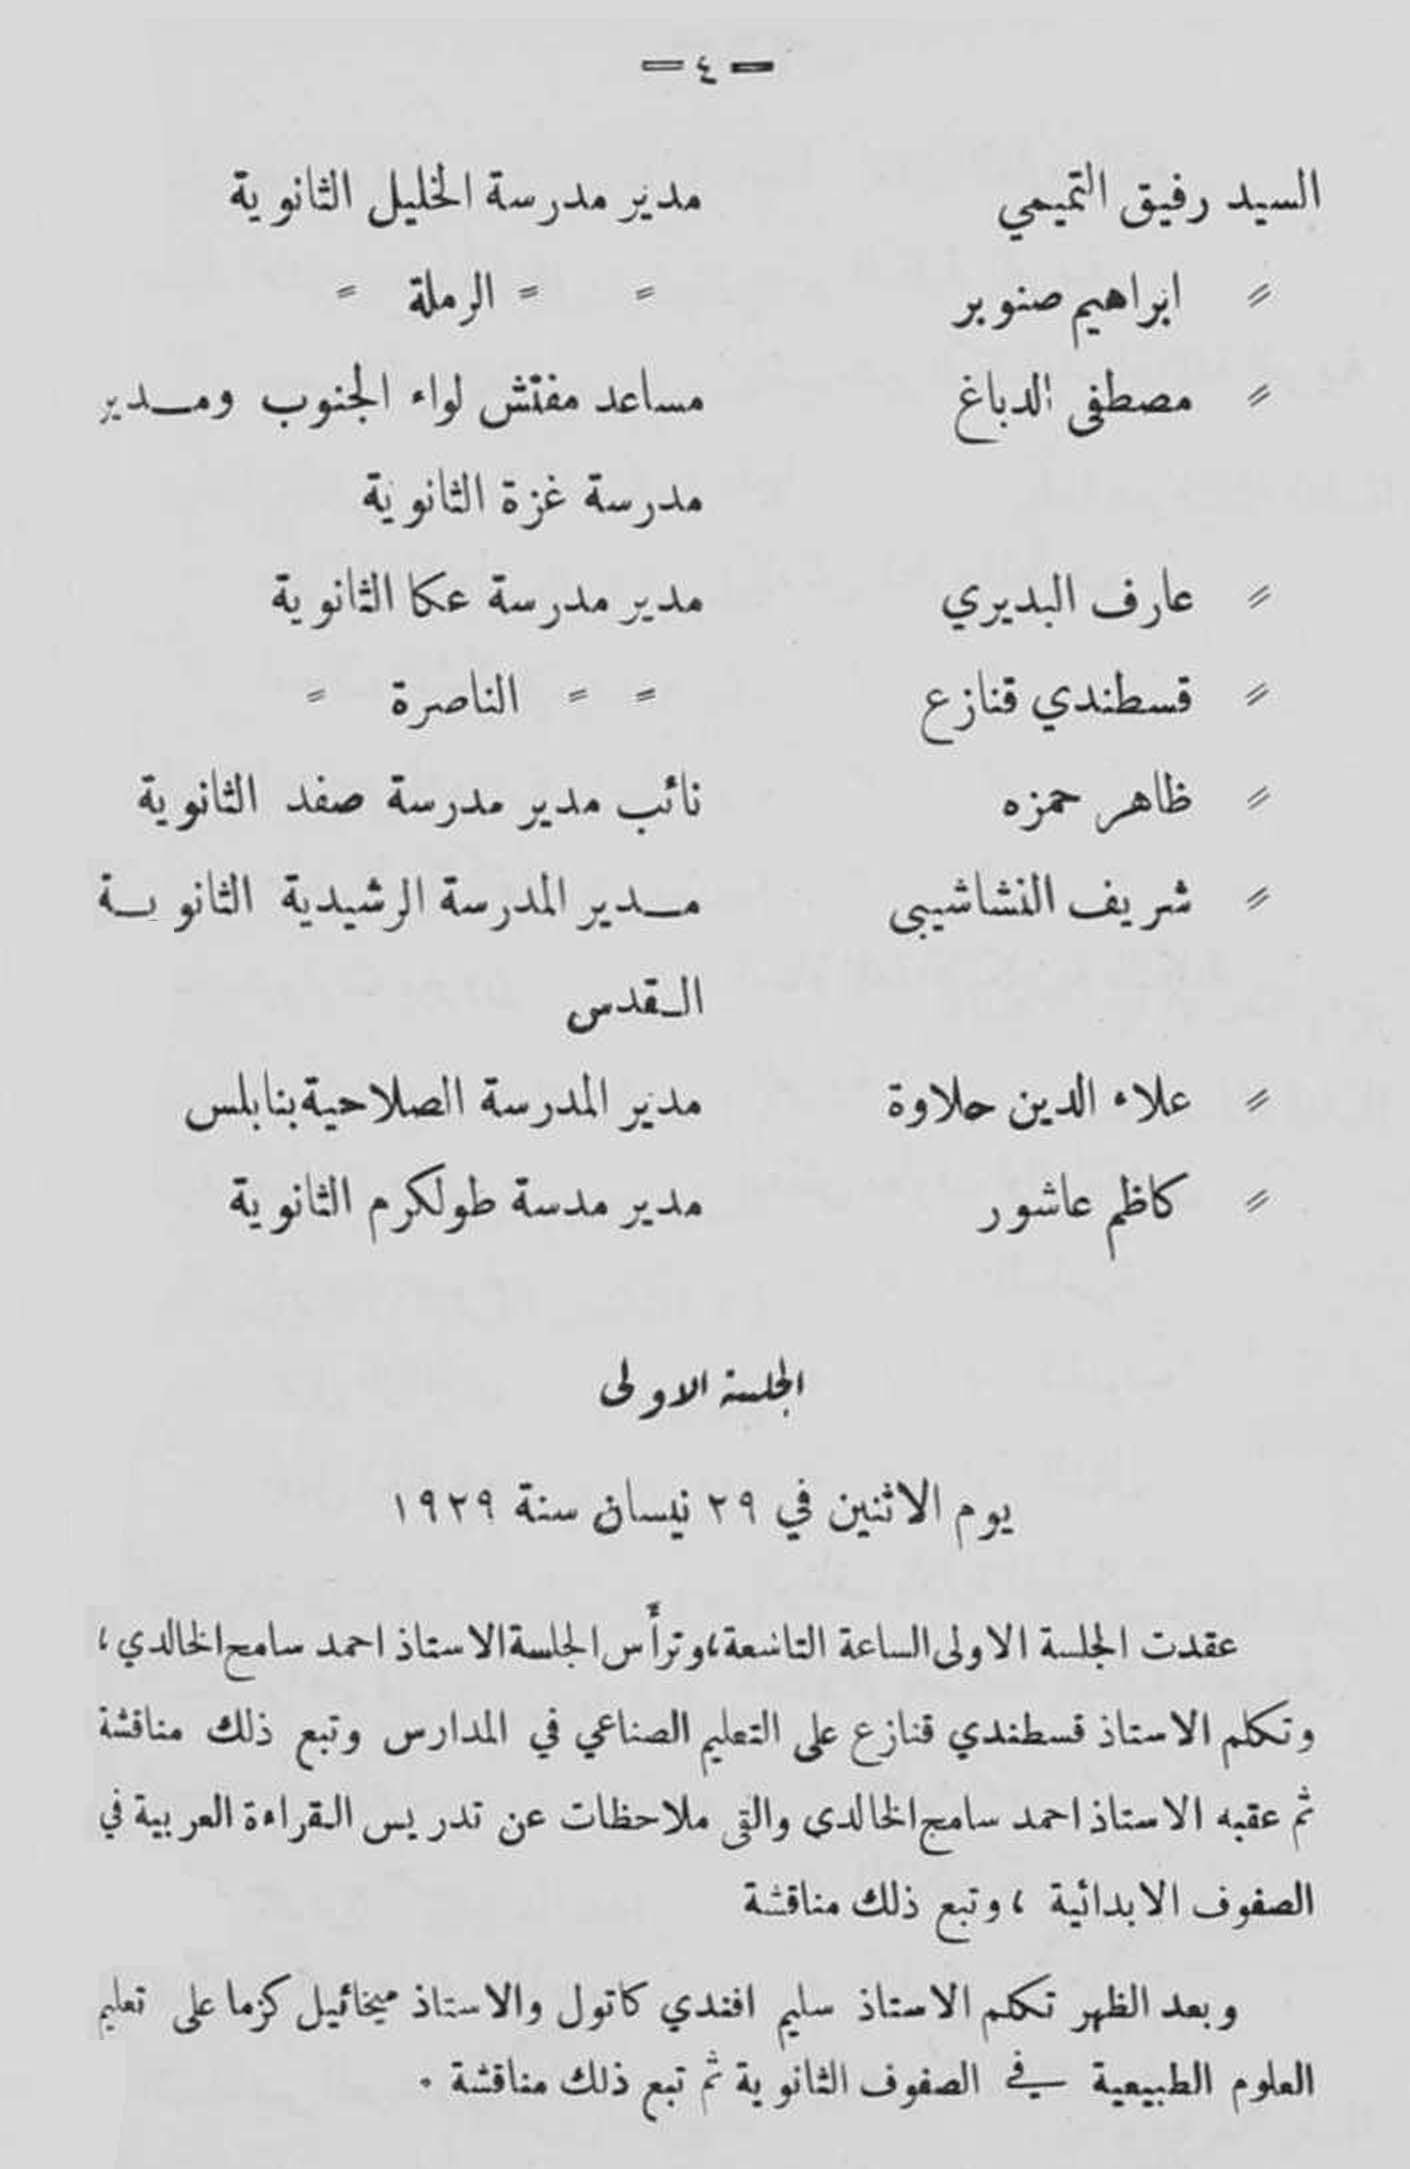 — ٤ —
السيد رفيق التميمي مدير مدرسة الخليل الثانوية
〃 ابراهيم صنوبر 〃 〃 الرملة 〃
〃 مصطفى الدباغ مساعد مفتش لواء الجنوب ومـدير
مدرسة غزة الثانوية
〃 عارف البديري مدير مدرسة عكا الثانوية
〃 قسطندي قنازع 〃 〃 الناصرة 〃
〃 ظاهر حمزه نائب مدير مدرسة صفد الثانوية
〃 شريف النشاشيبي مـدير المدرسة الرشيدية الثانويـة
الـقدس
〃 علاء الدين حلاوة مدير المدرسة الصلاحية بنابلس
〃 كاظم عاشور مدير مدسة طولكرم الثانوية
الجلسة الاولى
يوم الاثنين في ٢٩ نيسان سنة ١٩٢٩
عقدت الجلسة الاولى الساعة التاسعة، وترأس الجلسة الاستاذ احمد سامح الخالدي،
وتكلم الاستاذ قسطندي قنازع على التعليم الصناعي في المدارس وتبع ذلك مناقشة
ثم عقبه الاستاذ احمد سامح الخالدي والقى ملاحظات عن تدريس القراءة العربية في
الصفوف الابدائية ، وتبع ذلك مناقشة
وبعد الظهر تكلم الاستاذ سليم افندي كاتول والاستاذ ميخائيل كزما على تعليم
العلوم الطبيعية في الصفوف الثانوية ثم تبع ذلك مناقشة .